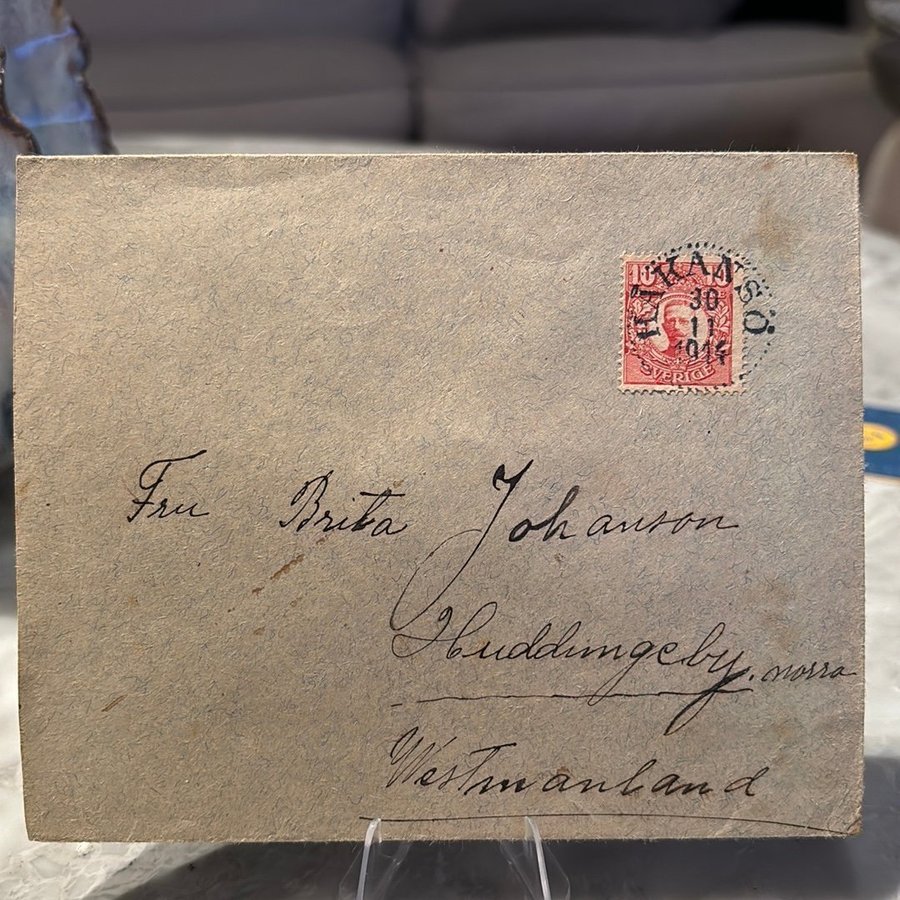 10 10
SVERIGE
HÅKANSÖ
30
11
1914
Fru Brita Johanson
Huddungeby. norra
Westmanland